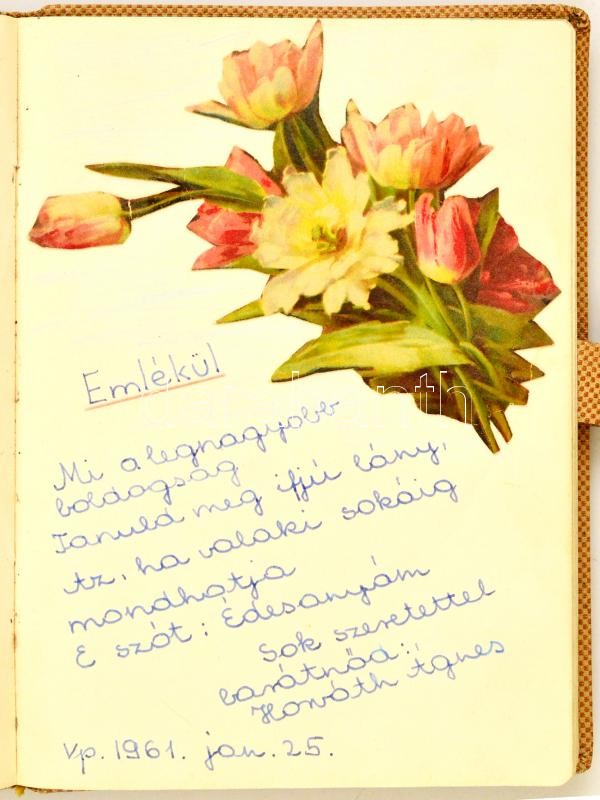 Emlékül
Mi a legnagyobb
boldogság
Tanuld meg ifjú lány,
Az, ha valaki sokáig
mondhatja
E szót: Édesanyám
Sok szeretettel
barátnőd:
Horváth Ágnes
Vp. 1961. jan. 25.